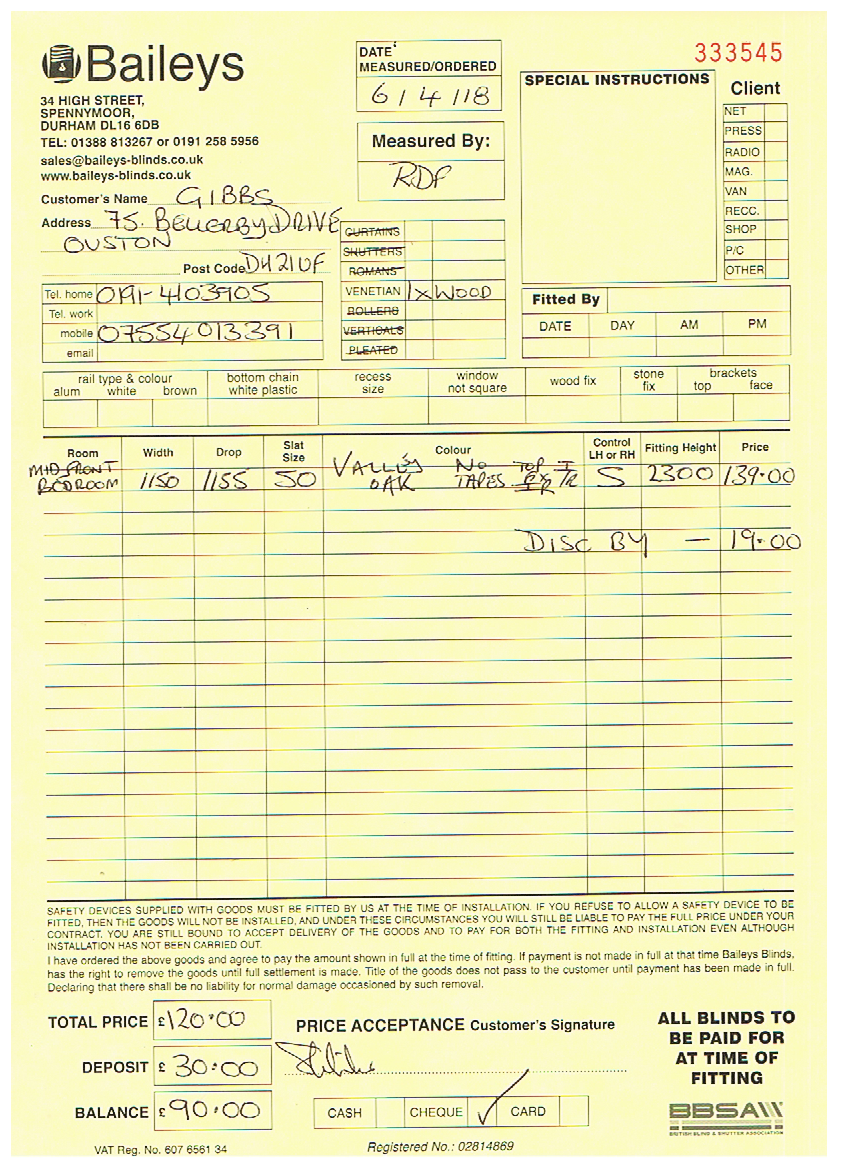 Baileys
34 HIGH STREET,
SPENNYMOOR,
DURHAM DL16 6DB
TEL: 01388 813267 or 0191 258 5956
sales@baileys-blinds.co.uk
www.baileys-blinds.co.uk
DATE
MEASURED/ORDERED
6/4/18
Measured By:
RDP
333545
SPECIAL INSTRUCTIONS
Client
NET
PRESS
RADIO
MAG.
VAN
RECC.
SHOP
P/C
OTHER
Customer's Name GIBBS
Address 75. BELLERBY DRIVE
OUSTON
Post Code DH21UF
Tel. home 0191-4103905
Tel. work
mobile 07554 013391
email
CURTAINS
SHUTTERS
ROMANS
VENETIAN 1xWOOD
ROLLERS
VERTICALS
PLEATED
Fitted By
DATE DAY AM PM
rail type & colour
alum white brown
bottom chain
white plastic
recess
size
window
not square
wood fix
stone
fix
brackets
top face
Room Width Drop Slat Size Colour Control LH or RH Fitting Height Price
MID FRONT BEDROOM 1150 1155 50 VALLEY OAK NO TAPES S 2300 139.00
DISC BY - 19.00
SAFETY DEVICES SUPPLIED WITH GOODS MUST BE FITTED BY US AT THE TIME OF INSTALLATION. IF YOU REFUSE TO ALLOW A SAFETY DEVICE TO BE
FITTED, THEN THE GOODS WILL NOT BE INSTALLED, AND UNDER THESE CIRCUMSTANCES YOU WILL STILL BE LIABLE TO PAY THE FULL PRICE UNDER YOUR
CONTRACT. YOU ARE STILL BOUND TO ACCEPT DELIVERY OF THE GOODS AND TO PAY FOR BOTH THE FITTING AND INSTALLATION EVEN ALTHOUGH
INSTALLATION HAS NOT BEEN CARRIED OUT.
I have ordered the above goods and agree to pay the amount shown in full at the time of fitting. If payment is not made in full at that time Baileys Blinds,
has the right to remove the goods until full settlement is made. Title of the goods does not pass to the customer until payment has been made in full.
Declaring that there shall be no liability for normal damage occasioned by such removal.
TOTAL PRICE £120.00
DEPOSIT £ 30.00
BALANCE £90.00
PRICE ACCEPTANCE Customer's Signature
CASH CHEQUE ✓ CARD
ALL BLINDS TO
BE PAID FOR
AT TIME OF
FITTING
BBSA
BRITISH BLIND & SHUTTER ASSOCIATION
VAT Reg. No. 607 6561 34
Registered No.: 02814869